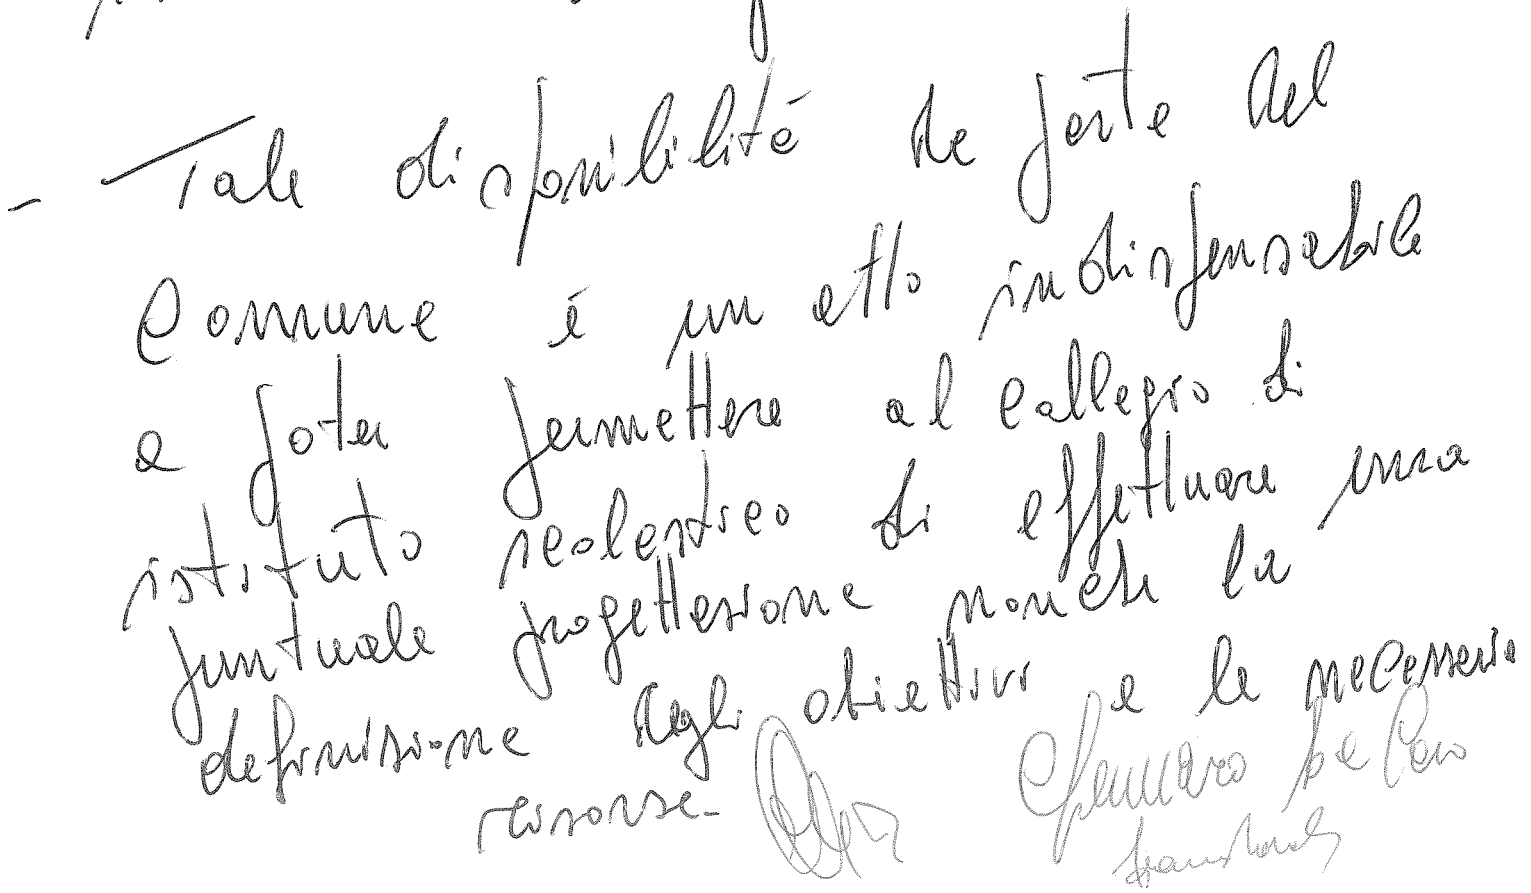 - Tale disponibilità da parte del
Comune è un atto indispensabile
a poter permettere al Collegio di
istituto scolastico di effettuare una
puntuale progettazione nonché la
definizione degli obiettivi e le necessarie
risorse.
Gennaro De